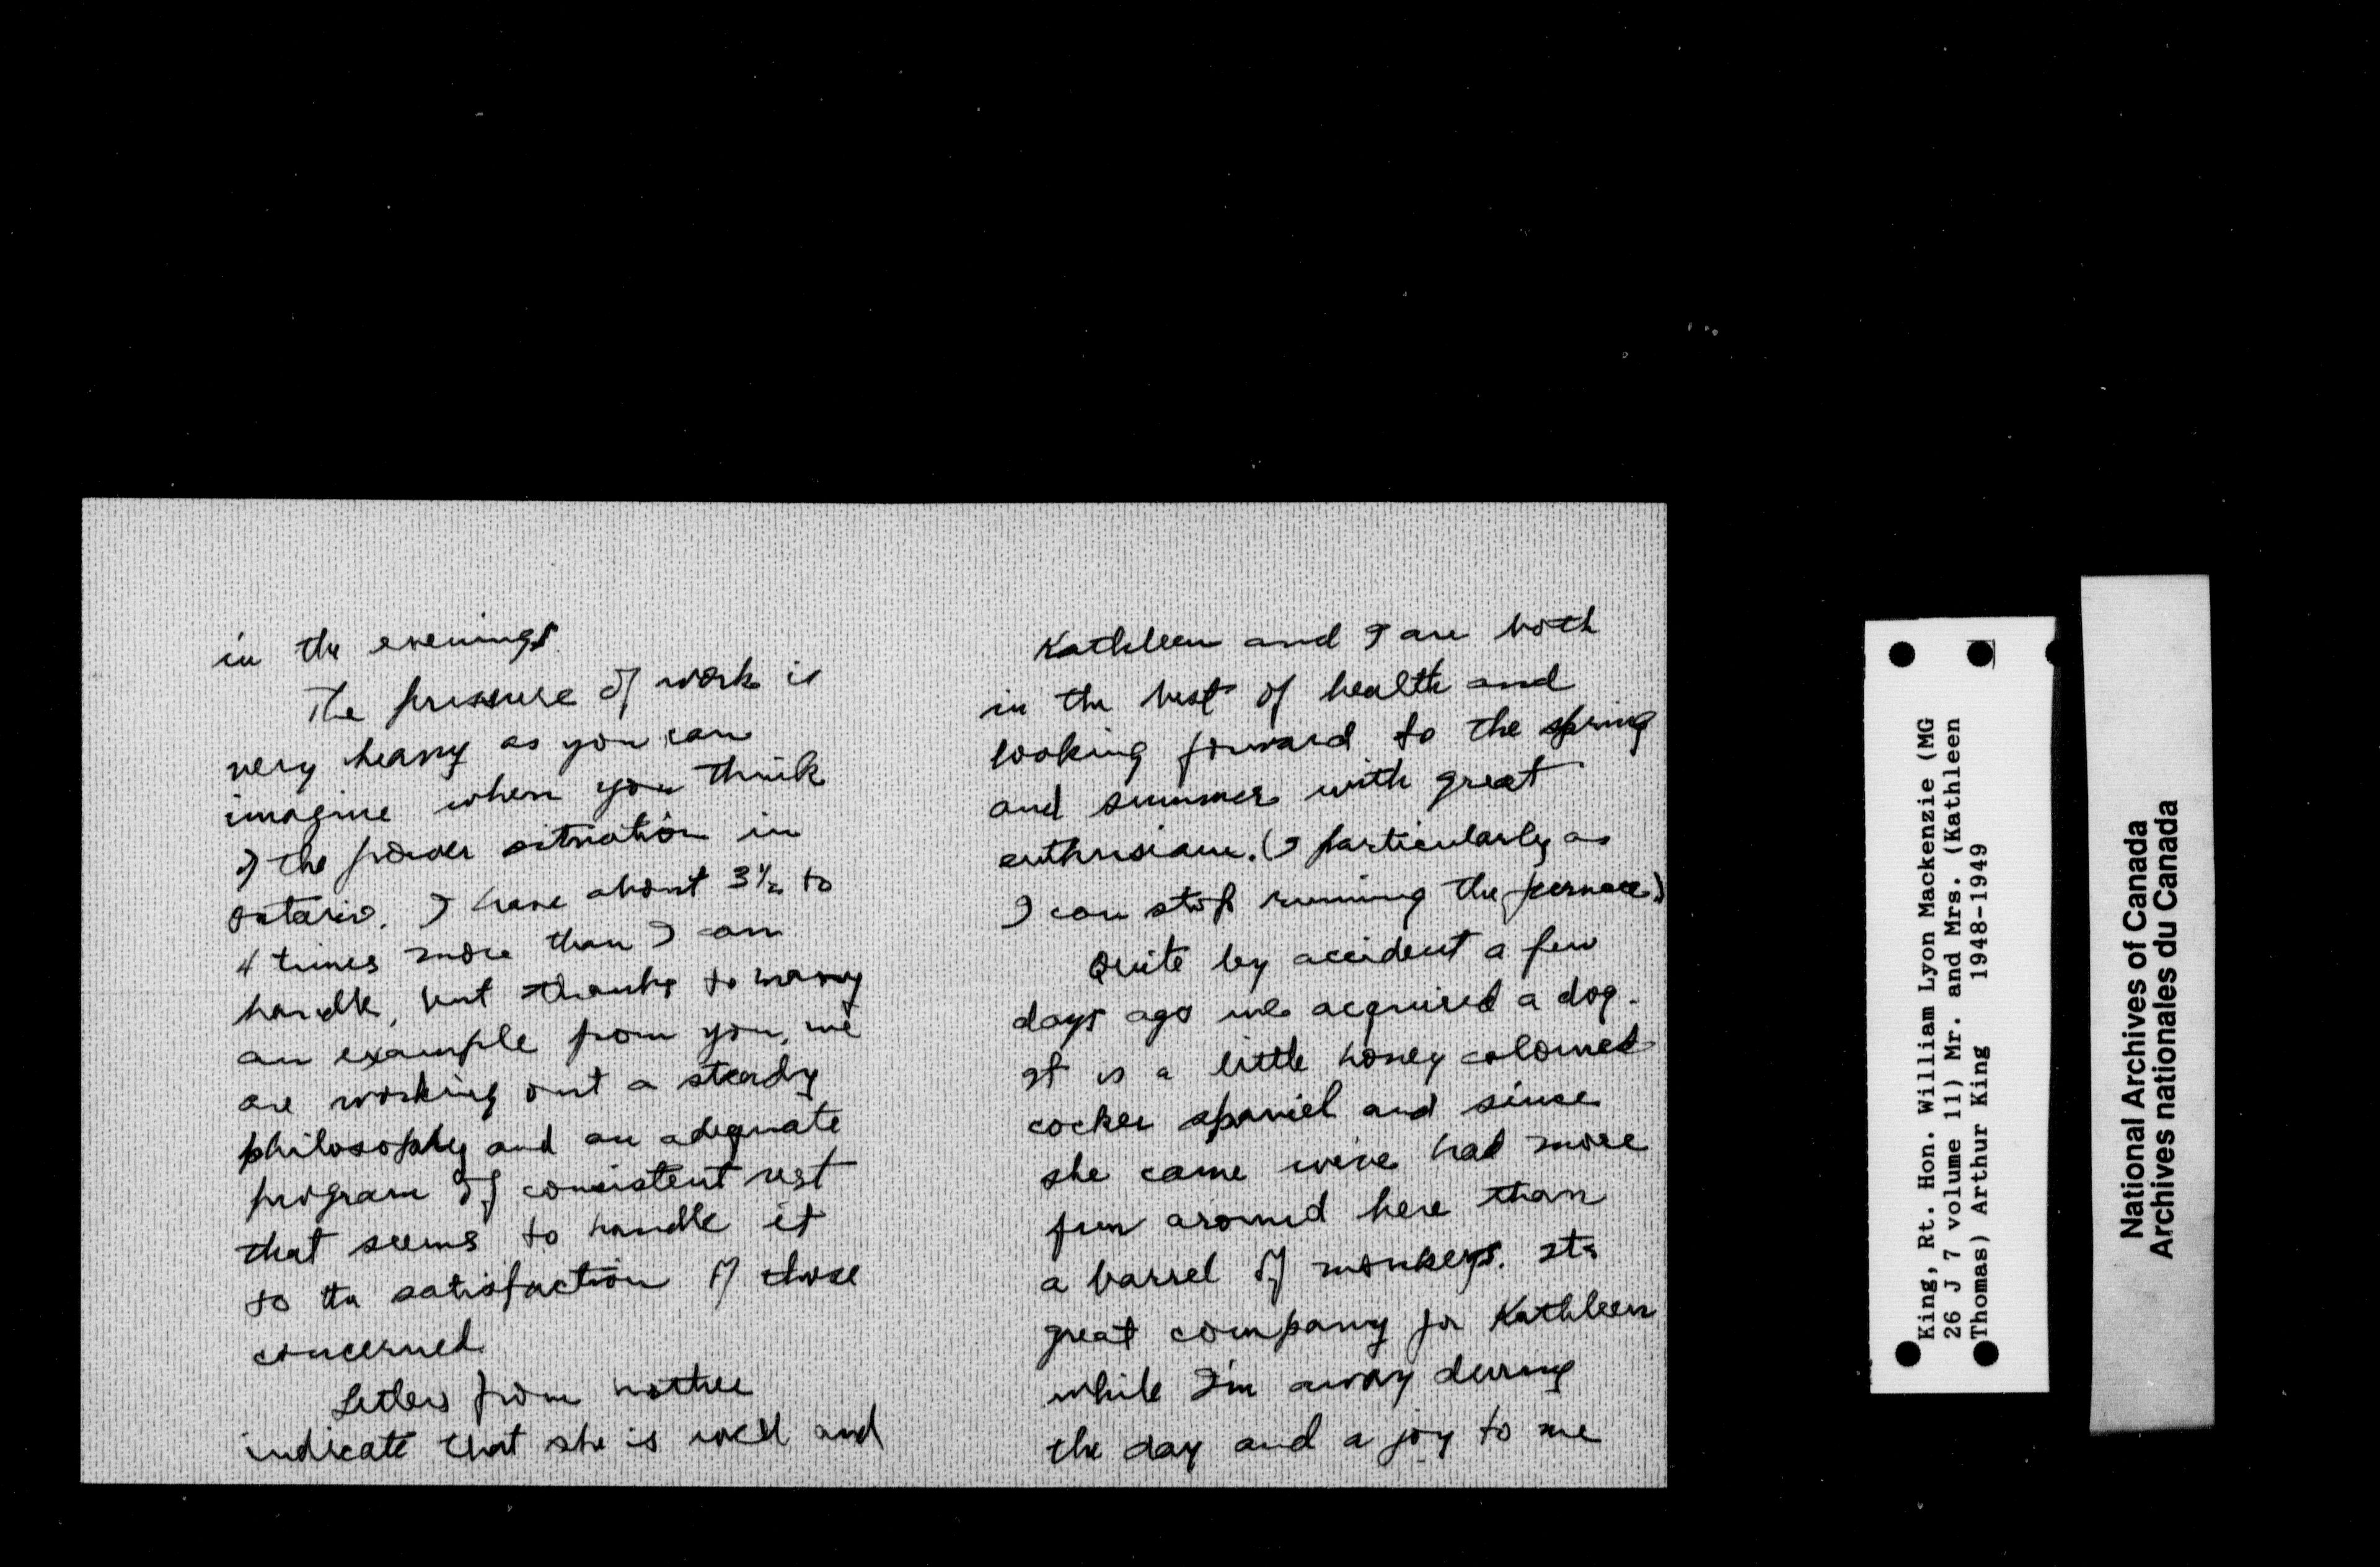 in the evenings.
The pressure of work is
very heavy as you can
imagine when you think
of the power situation in
Ontario. I have about 3½ to
4 times more than I can
handle, but thanks to many
an example from you, we
are working out a steady
philosophy and an adequate
program of consistent rest
that seems to handle it
to the satisfaction of those
concerned
Letters from mother
indicate that she is well and
Kathleen and I are both
in the best of health and
looking forward to the spring
and summer with great
enthusiasm. (I particularly as
I can stop running the furnace.)
Quite by accident a few
days ago we acquired a dog.
It is a little honey coloured
cocker spaniel and since
she came we've had more
fun around here than
a barrel of monkeys. Its
great company for Kathleen
while I'm away during
the day and a joy to me
King, Rt. Hon. William Lyon Mackenzie (MG
26 J 7 volume 11) Mr. and Mrs. (Kathleen
Thomas) Arthur King 1948-1949
National Archives of Canada
Archives nationales du Canada